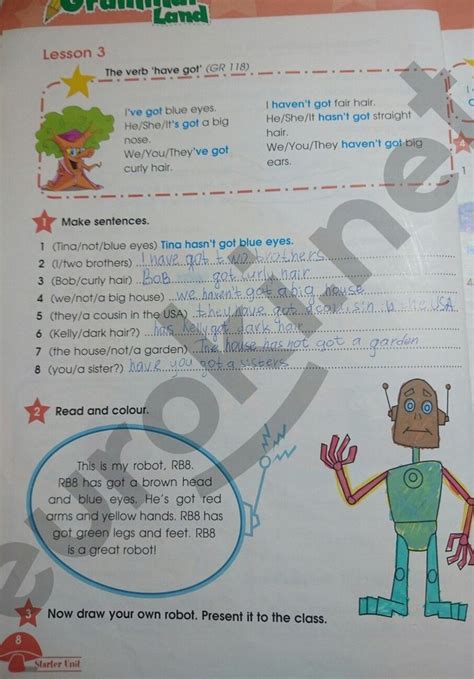 Grammar
Land
Lesson 3
The verb 'have got' (GR 118)
I've got blue eyes.
He/She/It's got a big
nose.
We/You/They've got
curly hair.
I haven't got fair hair.
He/She/It hasn't got straight
hair.
We/You/They haven't got big
ears.
1 Make sentences.
1 (Tina/not/blue eyes) Tina hasn't got blue eyes.
2 (I/two brothers) I have got two brothers
3 (Bob/curly hair) Bob got curly hair
4 (we/not/a big house) we haven't got a big house
5 (they/a cousin in the USA) they have got the USA
6 (Kelly/dark hair?) has Kelly got dark hair
7 (the house/not/a garden) The house has not got a garden
8 (you/a sister?) have you got a sisters
2 Read and colour.
This is my robot, RB8.
RB8 has got a brown head
and blue eyes. He's got red
arms and yellow hands. RB8 has
got green legs and feet. RB8
is a great robot!
3 Now draw your own robot. Present it to the class.
8
Starter Unit
euroki.net